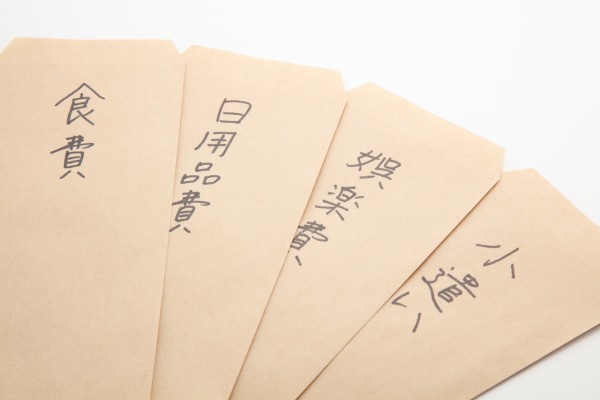 食費
日用品費
娯楽費
小遣い